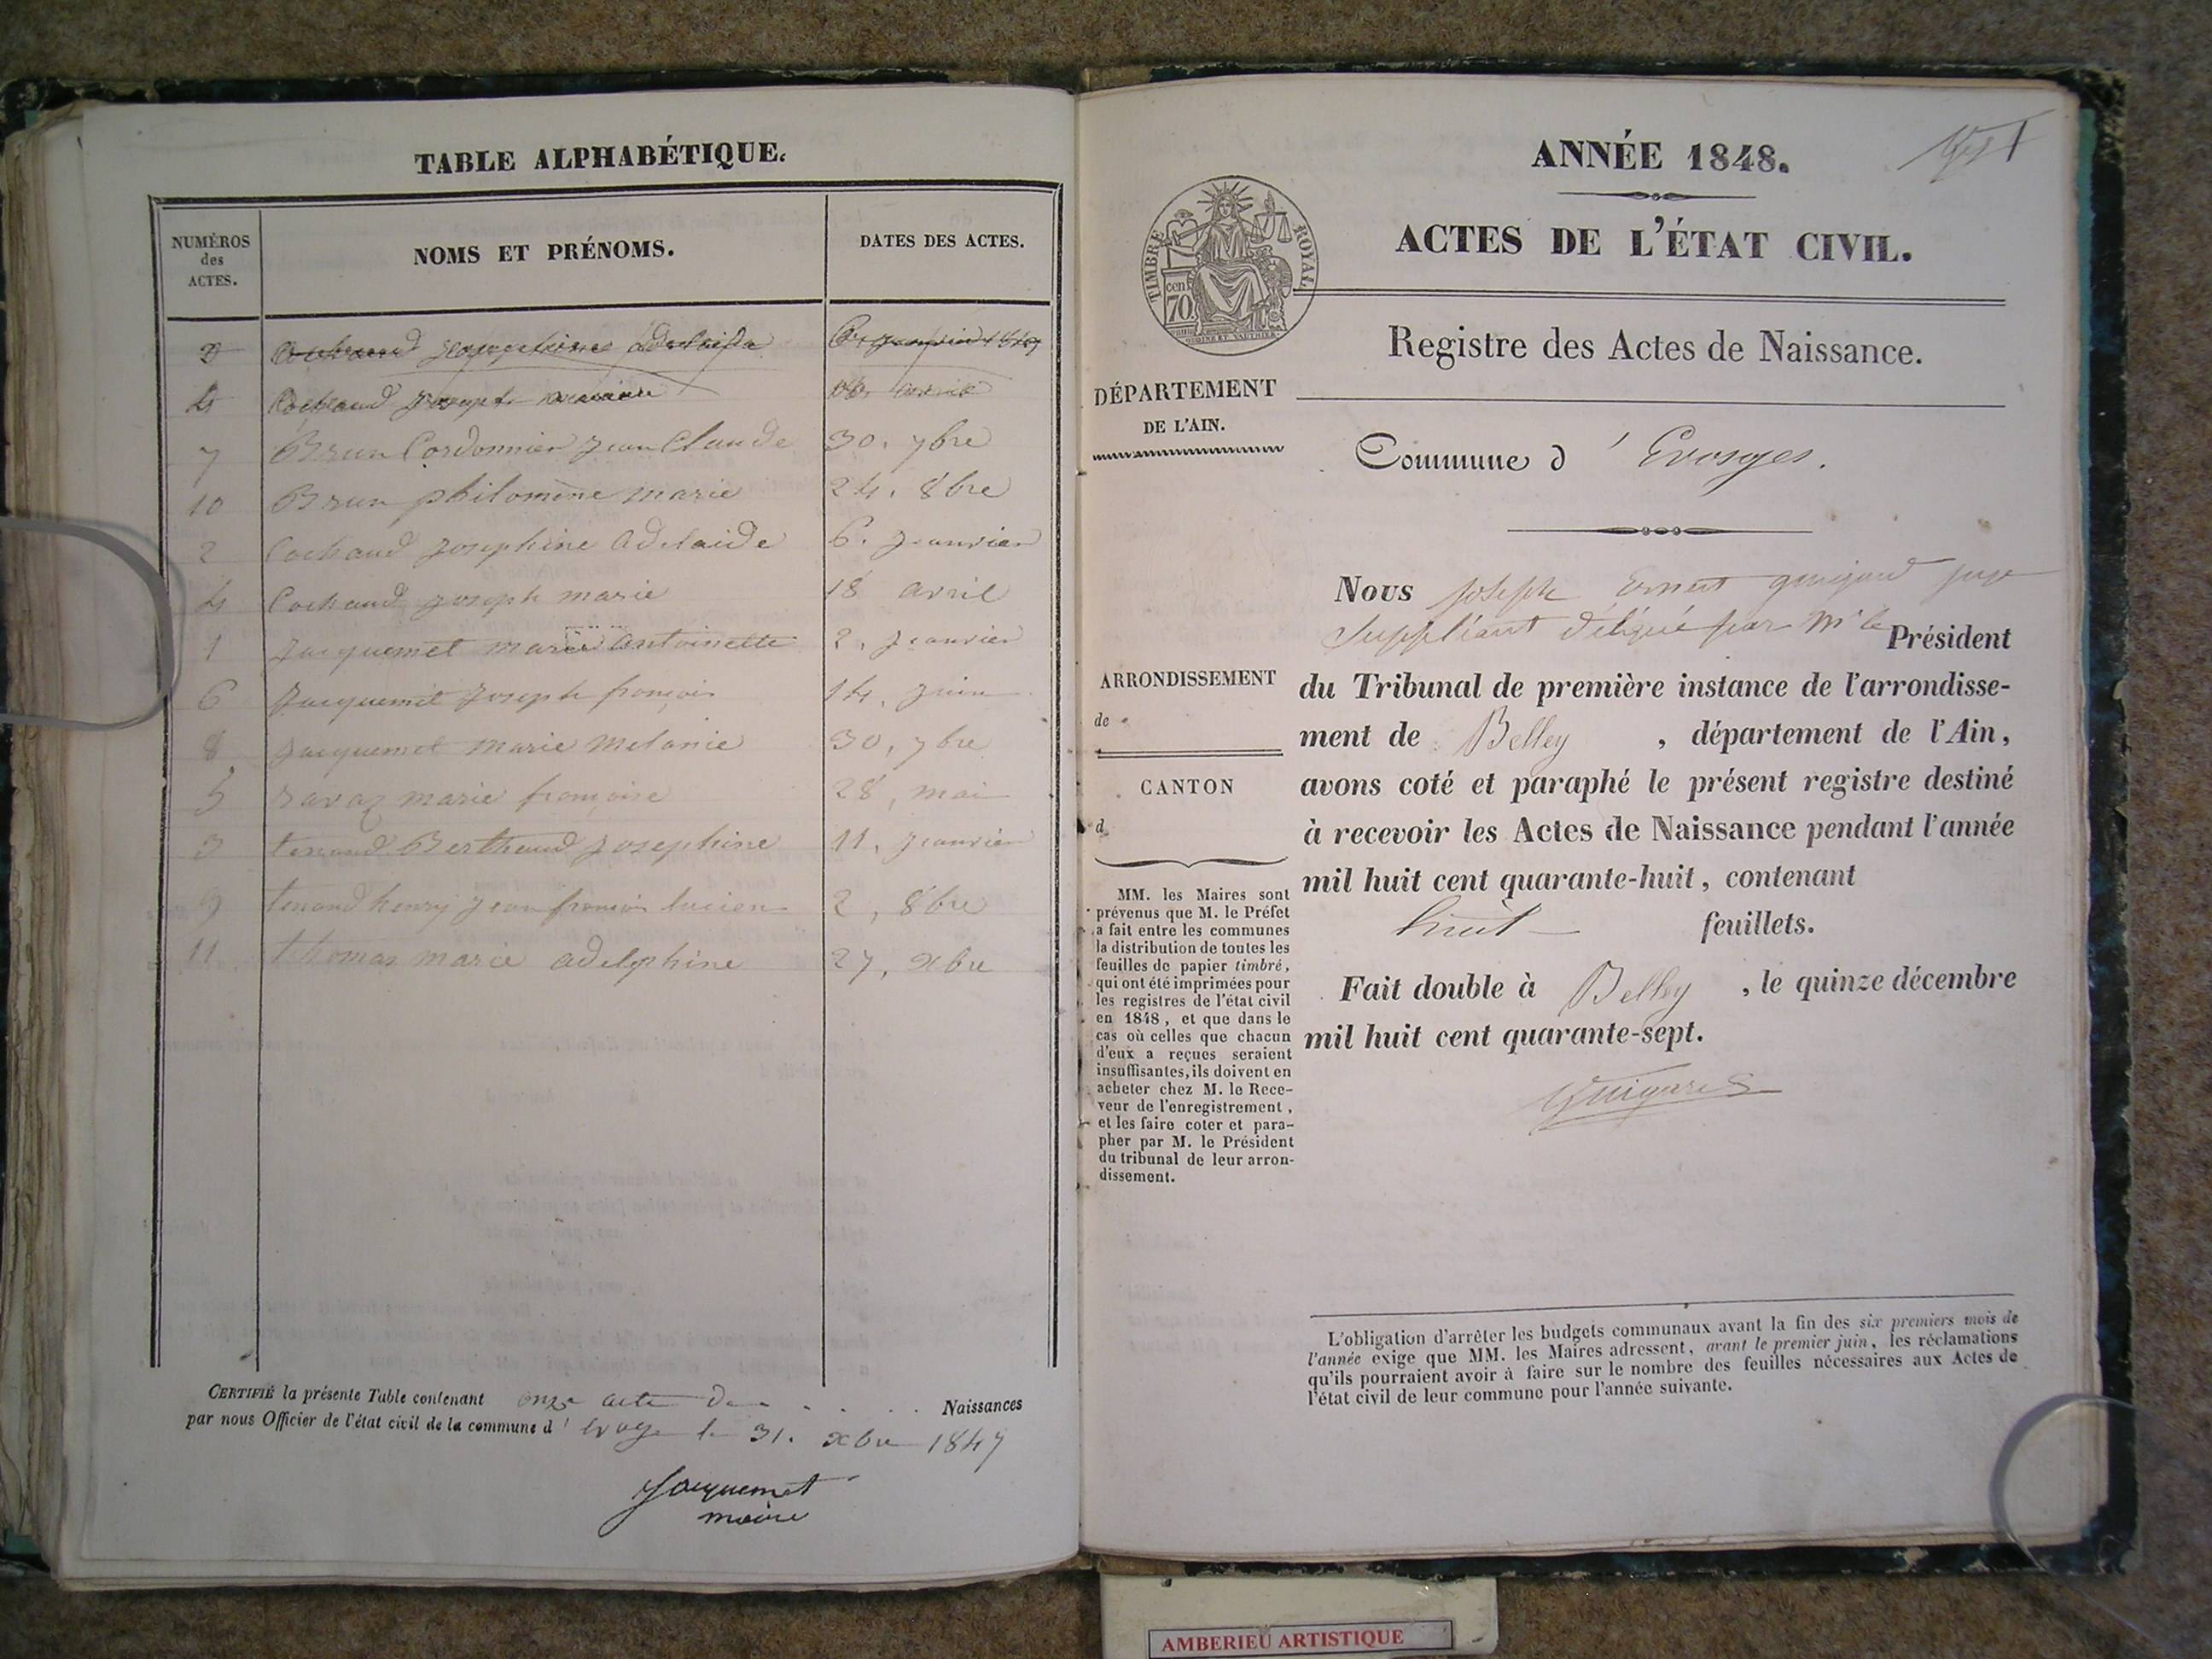 TABLE ALPHABÉTIQUE.
NUMÉROS
des
ACTES.
NOMS ET PRÉNOMS.
DATES DES ACTES.
2 Cochaud Josephine Adelaide
4 Cochaud Joseph marie 18 avril
7 Brun Cordonnier Jean Claude 30. 7bre
10 Brun philomène marie 24. 8bre
2 Cochaud Josephine Adelaide 6. Janvier
4 Cochaud Joseph marie 18 avril
1 Jacquemet marie antoinette 2. Janvier
6 Jacquemet Joseph françois 14. juin
8 Jacquemet Marie Melanie 30, 7bre
5 ravaz marie françoise 28, mai
3 tenand Berthaud Josephine 11, Janvier
9 tenand henry Jean françois lucien 2, 8bre
11 thomas marie adelphine 27, xbre
CERTIFIÉ la présente Table contenant onze acte de Naissances
par nous Officier de l'état civil de la commune d' le 31. xbre 1847
Jacquemet
maire
ANNÉE 1848.
ACTES DE L'ÉTAT CIVIL.
TIMBRE ROYAL
cen
70.
Registre des Actes de Naissance.
DÉPARTEMENT
DE L'AIN.
Commune d' Evosges.
Nous Joseph Ernest guigard juge
Suppléant délégué par Mr le Président
ARRONDISSEMENT
de
CANTON
d
du Tribunal de première instance de l'arrondisse-
ment de Belley, département de l'Ain,
avons coté et paraphé le présent registre destiné
à recevoir les Actes de Naissance pendant l'année
mil huit cent quarante-huit, contenant
huit feuillets.
Fait double à Belley, le quinze décembre
mil huit cent quarante-sept.
Guigard
MM. les Maires sont
prévenus que M. le Préfet
a fait entre les communes
la distribution de toutes les
feuilles de papier timbré,
qui ont été imprimées pour
les registres de l'état civil
en 1848, et que dans le
cas où celles que chacun
d'eux a reçues seraient
insuffisantes, ils doivent en
acheter chez M. le Rece-
veur de l'enregistrement,
et les faire coter et para-
pher par M. le Président
du tribunal de leur arron-
dissement.
L'obligation d'arrêter les budgets communaux avant la fin des six premiers mois de
l'année exige que MM. les Maires adressent, avant le premier juin, les réclamations
qu'ils pourraient avoir à faire sur le nombre des feuilles nécessaires aux Actes de
l'état civil de leur commune pour l'année suivante.
AMBERIEU ARTISTIQUE